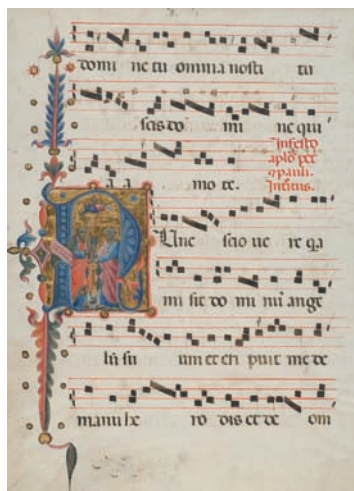 domi ne tu omnia nosti tu
scis do mi ne qui
a a mo te.
In festo
aplo pet
& pauli.
Introitus.
Nunc scio ue re qa
mi sit do mi nus ange
lū su um et eri puit me de
manu he ro dis et de om